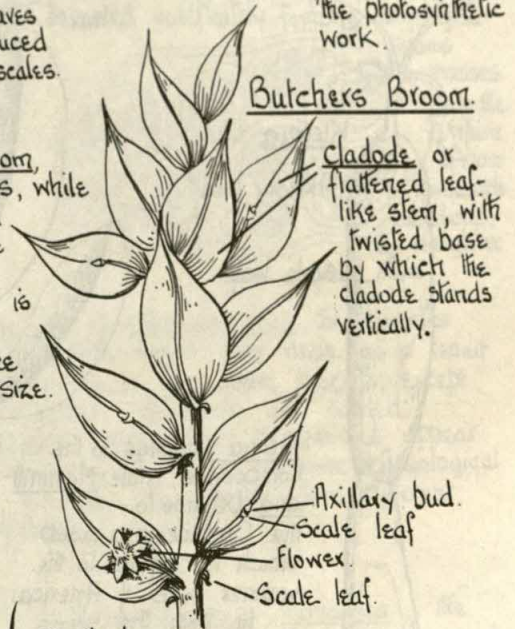 aves
uced
scales.
om,
s, while
is
ce
size.
the photosynthetic
work.
Butchers Broom.
Cladode or
flattened leaf-
like stem, with
twisted base
by which the
cladode stands
vertically.
Axillary bud.
Scale leaf
Flower.
Scale leaf.